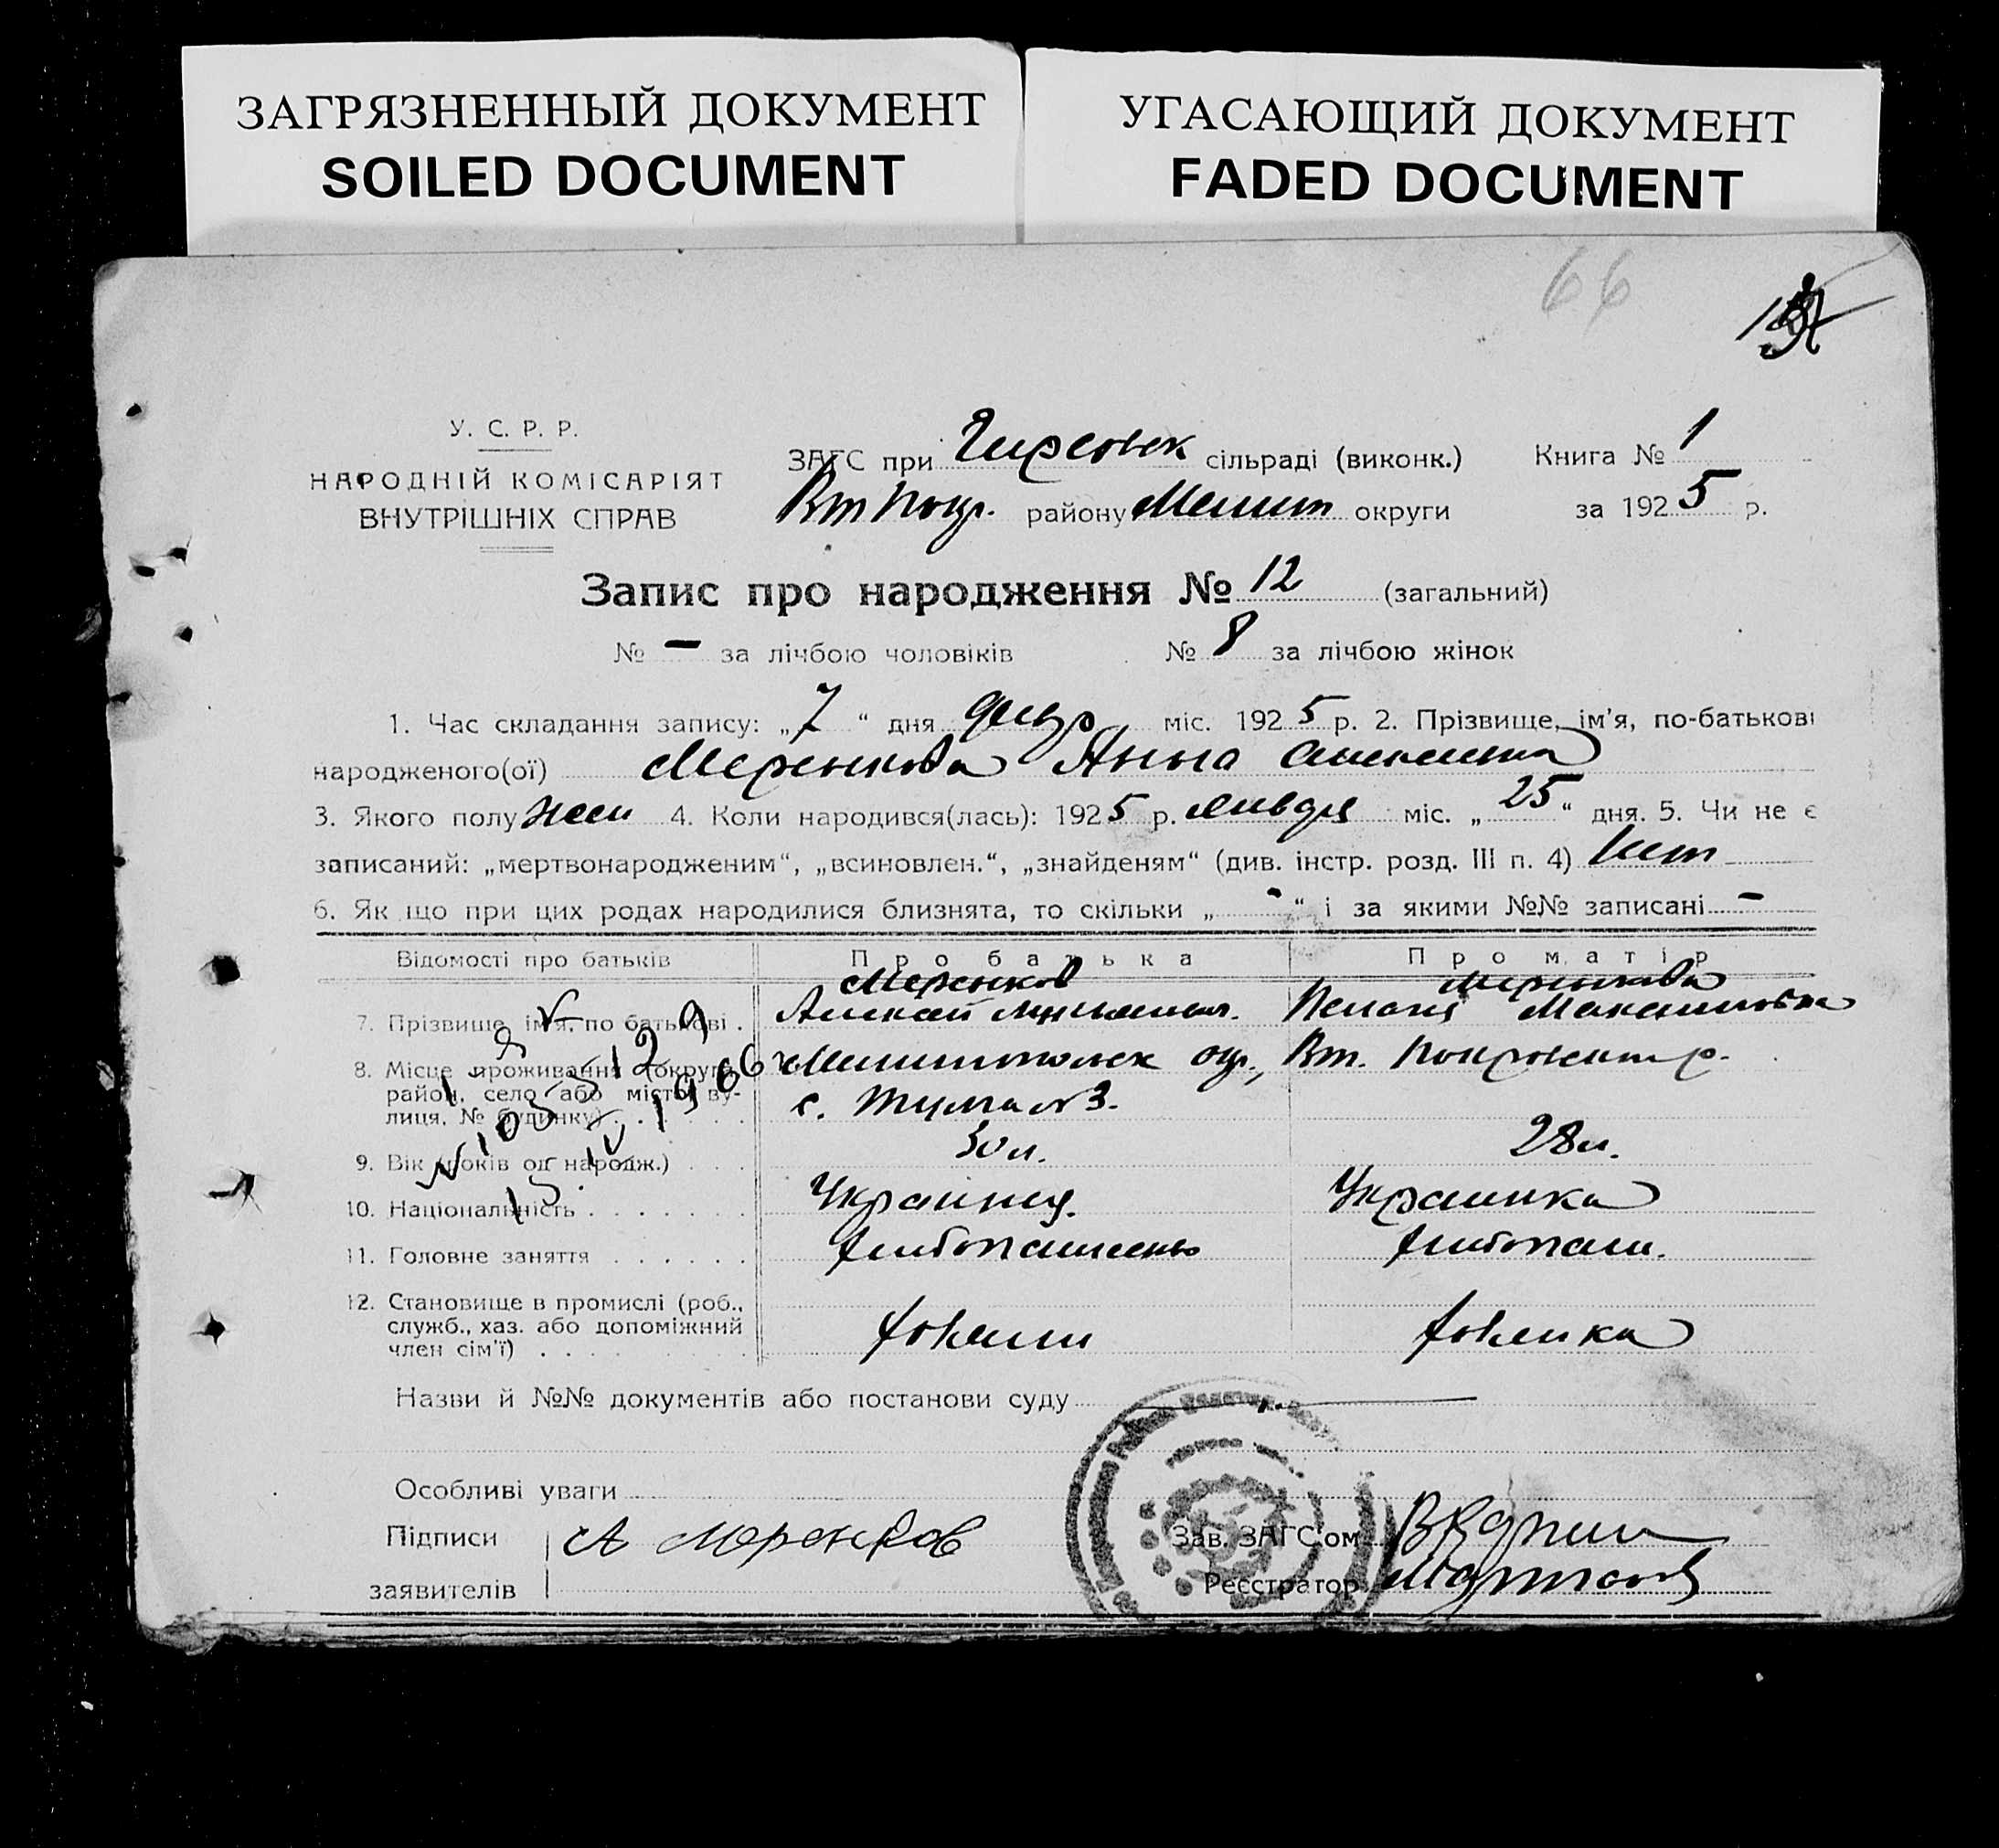 ЗАГРЯЗНЕННЫЙ ДОКУМЕНТ
SOILED DOCUMENT
УГАСАЮЩИЙ ДОКУМЕНТ
FADED DOCUMENT
66
У. С. Р. Р.
НАРОДНІЙ КОМІСАРІЯТ
ВНУТРІШНІХ СПРАВ
ЗАГС при Гирсовск сільраді (виконк.) Книга № 1
Вт Покр. району Мелит округи за 1925 р.
Запис про народження № 12 (загальний)
№ - за лічбою чоловіків № 8 за лічбою жінок
1. Час складання запису: „7“ дня февр міс. 1925 р. 2. Прізвище, ім'я, по-батькові
народженого(ої) Меренкова Анна
3. Якого полу жен 4. Коли народився(лась): 1925 р. января міс. „25“ дня. 5. Чи не є
записаний: „мертвонародженим“, „всиновлен.“, „знайденям“ (див. інстр. розд. III п. 4) нет
6. Як що при цих родах народилися близнята, то скільки „-“ і за якими №№ записані -
Відомості про батьків Про батька Про матір
Меренков Меренкова
7. Прізвище, ім'я, по батькові . Алексей Пелагия Максимовна
8. Місце проживання (округа, район, село або місто, вулиця, № будинку) Мелитопольск окр., Вт. Покровский р.
с. №3.
9. Вік (років од народж.) 30 л. 28 л.
10. Національність Украинец. Украинка
11. Головне заняття Хлебопашество Хлебопаш.
12. Становище в промислі (роб.,
служб., хаз. або допоміжний
член сім'ї) Хозяин Хозяйка
Назви й №№ документів або постанови суду
Особливі уваги
Підписи А Меренков Зав. ЗАГС'ом
заявителів Реєстратор